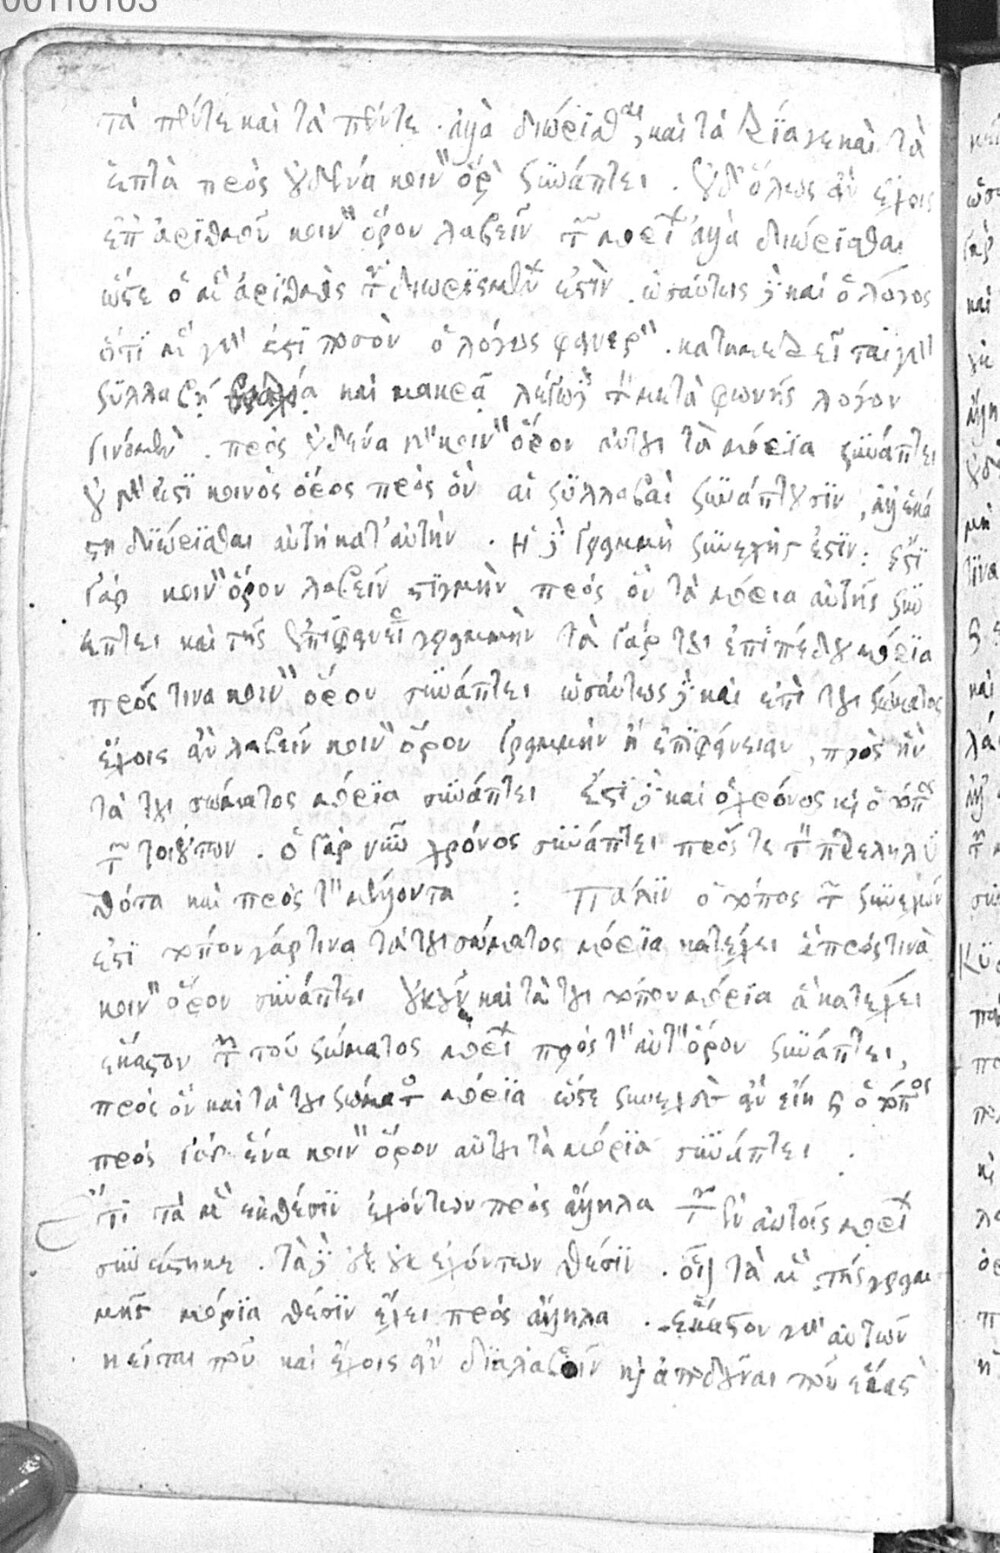 00110103
τὰ πέντε καὶ τὰ πέντε · ἀλλὰ διώρισται, καὶ τὰ τρία γε καὶ τὰ
ἑπτὰ πρὸς οὐδένα κοινὸν ὅρον ξυνάπτει · οὐδ' ὅλως ἂν ἔχοις
ἐπ' ἀριθμοῦ κοινὸν ὅρον λαβεῖν τῶν μορίων ἀλλὰ διώρισται
ὥστε ὁ μὲν ἀριθμὸς τῶν διωρισμένων ἐστίν · ὡσαύτως δὲ καὶ ὁ λόγος
ὅτι μὲν γὰρ ἐστὶ ποσὸν ὁ λόγος φανερόν · καταμετρεῖται γὰρ
ξυλλαβῇ καὶ μακρᾷ λέγω δὲ τὸν μετὰ φωνῆς λόγον
γινόμενον · πρὸς οὐδένα γὰρ κοινὸν ὅρον αὐτοῦ τὰ μόρια ξυνάπτει
οὐ γὰρ ἐστὶ κοινὸς ὅρος πρὸς ὃν αἱ ξυλλαβαὶ ξυνάπτουσιν, ἀλλ' ἑκά
στη διώρισται αὐτὴ κατ' αὐτήν · ἡ δὲ γραμμὴ ξυνεχής ἐστιν : ἔστι
γὰρ κοινὸν ὅρον λαβεῖν στιγμὴν πρὸς ὃν τὰ μόρια αὐτῆς ξυν
άπτει καὶ τῆς ἐπιφανείας γραμμήν τὰ γὰρ τοῦ ἐπιπέδου μόρια
πρός τινα κοινὸν ὅρον συνάπτει ὡσαύτως δὲ καὶ ἐπὶ τοῦ σώματος
ἔχοις ἂν λαβεῖν κοινὸν ὅρον γραμμὴν ἢ ἐπιφάνειαν, πρὸς ἣν
τὰ τοῦ σώματος μόρια συνάπτει ἔστι δὲ καὶ ὁ χρόνος καὶ ὁ τόπος
τῶν τοιούτων · ὁ γὰρ νῦν χρόνος συνάπτει πρός τε τὸν παρεληλυ
θότα καὶ πρὸς τὸν μέλλοντα : Πάλιν ὁ τόπος τῶν ξυνεχῶν
ἐστὶ τόπον γάρ τινα τὰ τοῦ σώματος μόρια κατέχει ἃ πρός τινα
κοινὸν ὅρον συνάπτει οὐκοῦν καὶ τὰ τοῦ τόπου μόρια ἃ κατέχει
ἕκαστον τῶν τοῦ σώματος μορίων πρὸς τὸν αὐτὸν ὅρον ξυνάπτει,
πρὸς ὃν καὶ τὰ τοῦ σώματος μόρια ὥστε ξυνεχὲς ἂν εἴη καὶ ὁ τόπος
πρὸς γὰρ ἕνα κοινὸν ὅρον αὐτοῦ τὰ μόρια συνάπτει :
Ἔτι τὰ μὲν ἐκ θέσιν ἐχόντων πρὸς ἄλληλα τῶν ἐν αὐτοῖς μορίων
συνέστηκε · τὰ δὲ οὐκ ἐχόντων θέσιν · οἷον τὰ μὲν τῆς γραμ
μῆς μόρια θέσιν ἔχει πρὸς ἄλληλα · ἕκαστον γὰρ αὐτῶν
κεῖται ποῦ καὶ ἔχοις ἂν διαλαβεῖν καὶ ἀποδοῦναι ποῦ ἕκαστ